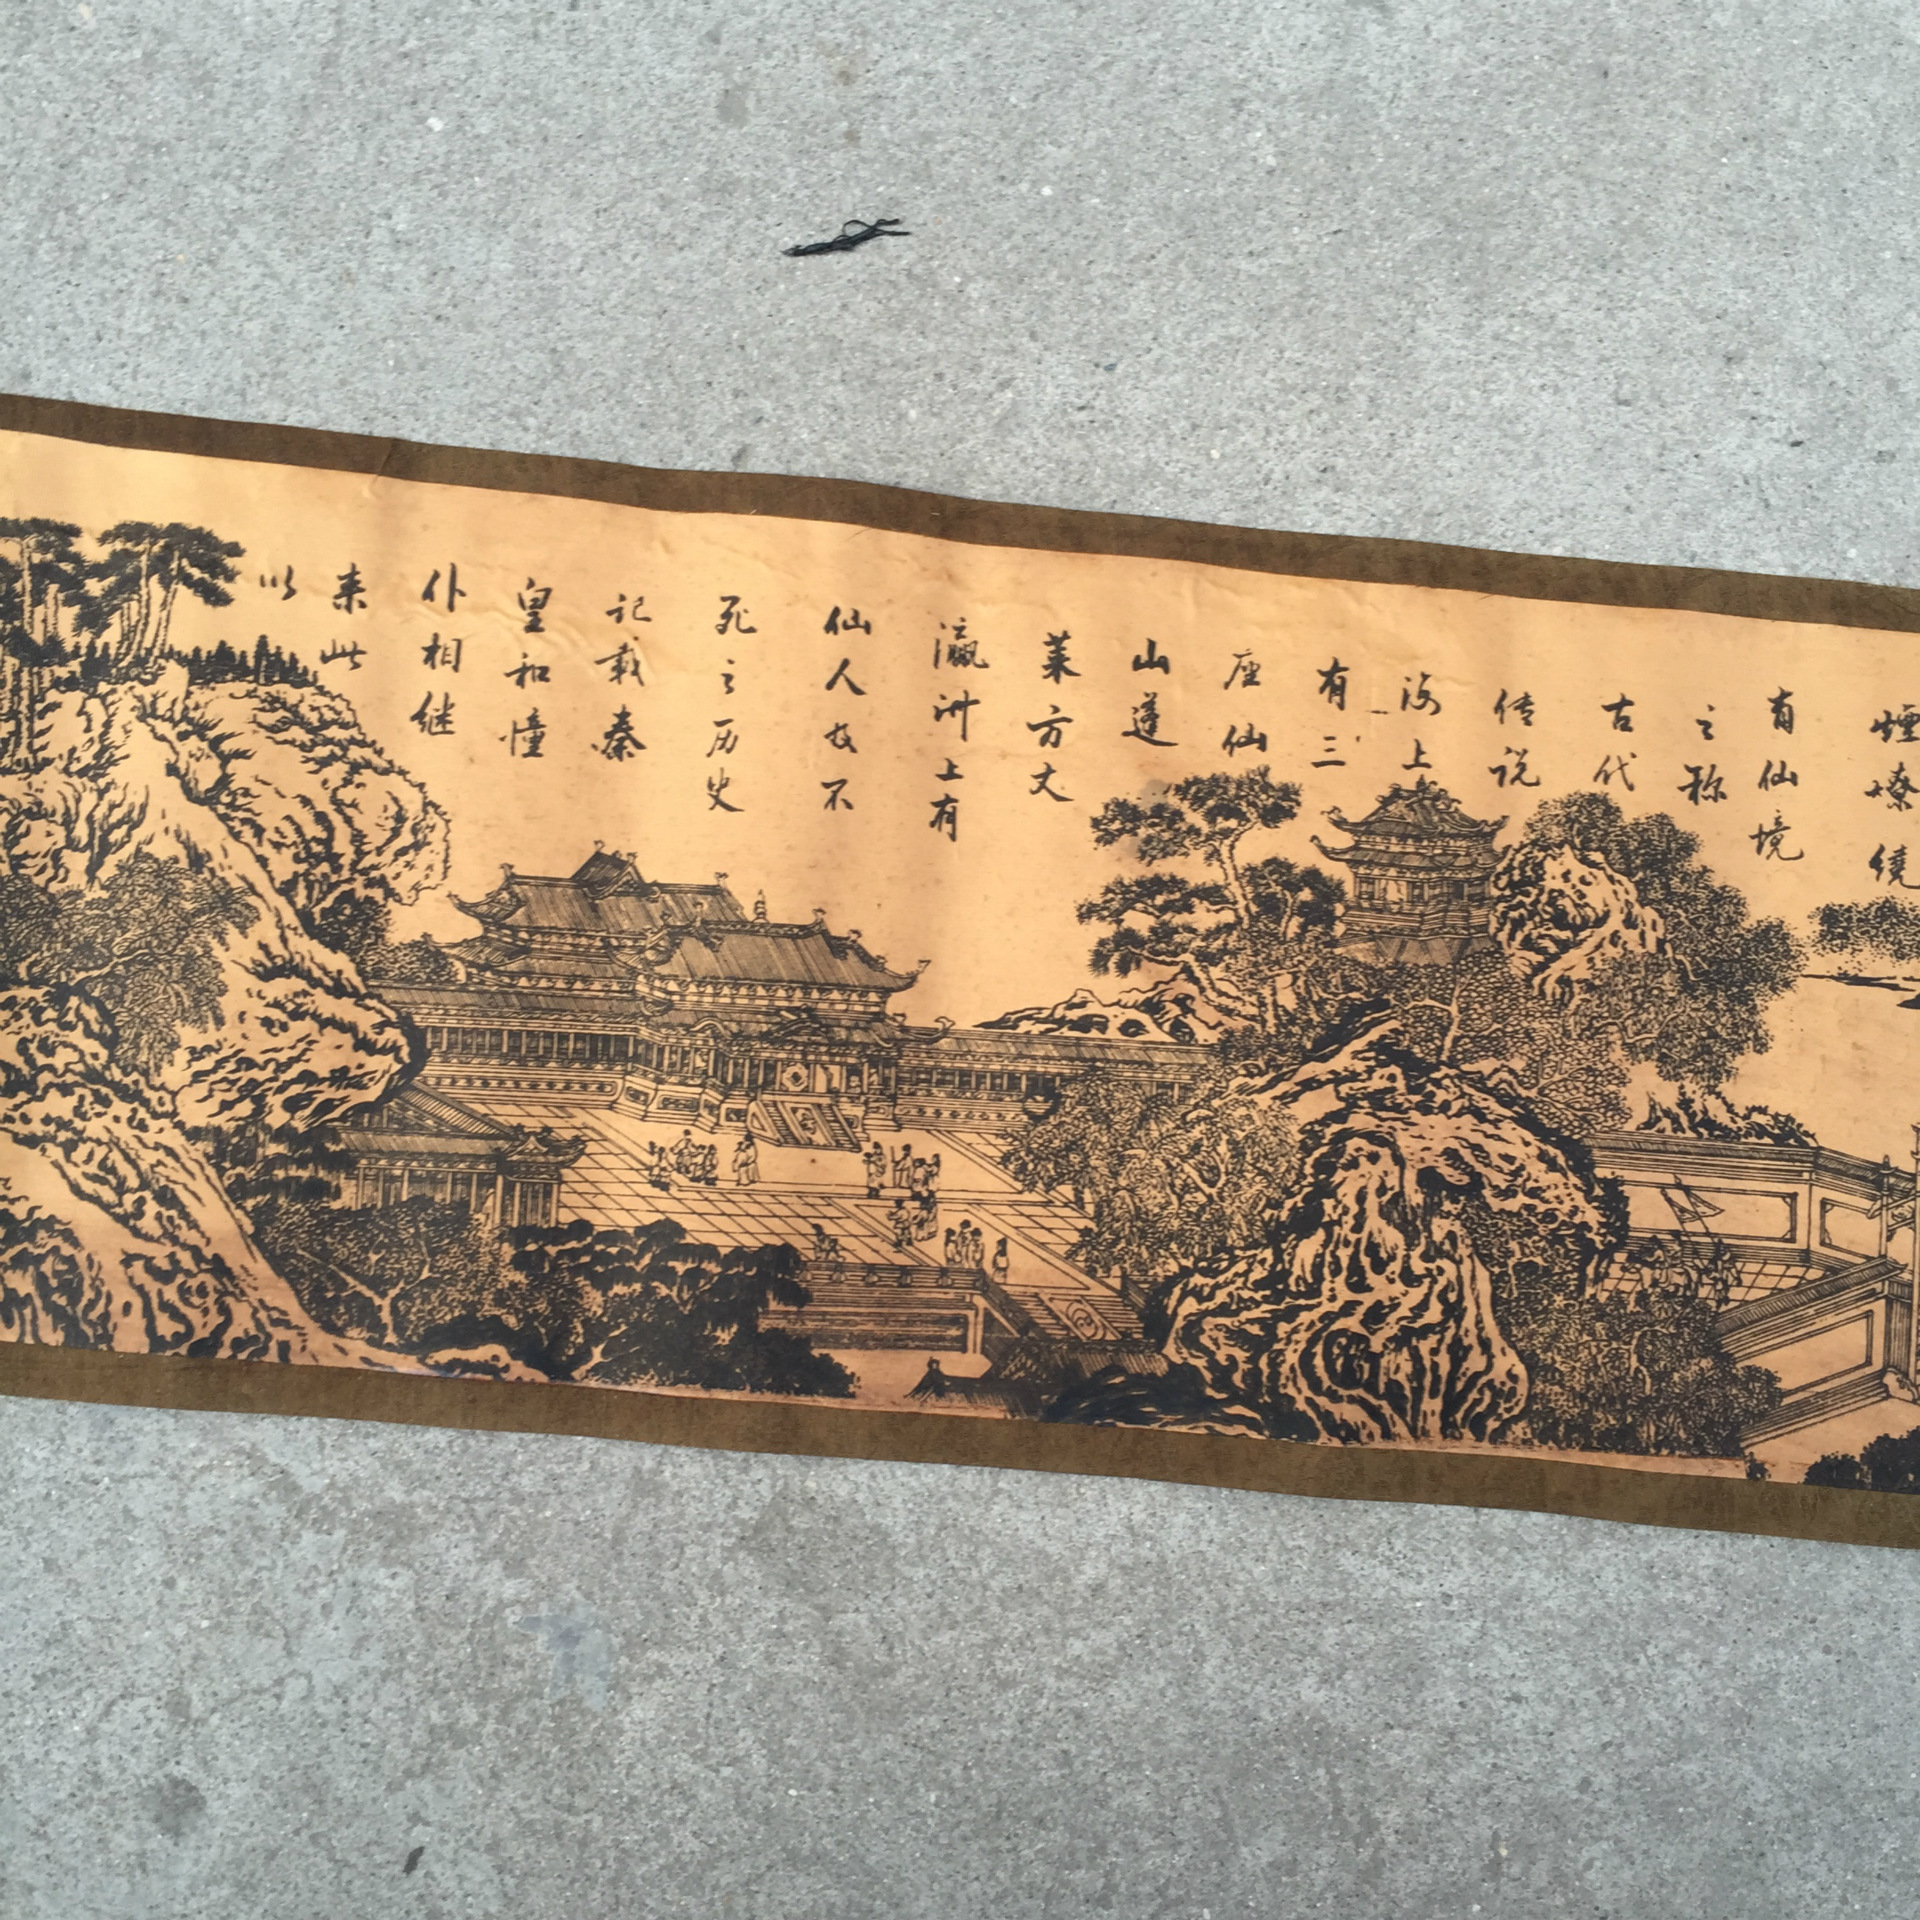 煙嘹繞
有仙境
之称
古代
传说
海上
有三
座仙
山蓬
莱方丈
瀛洲上有
仙人友不
死之历史
记载秦
皇和憧
仆相继
来此
以